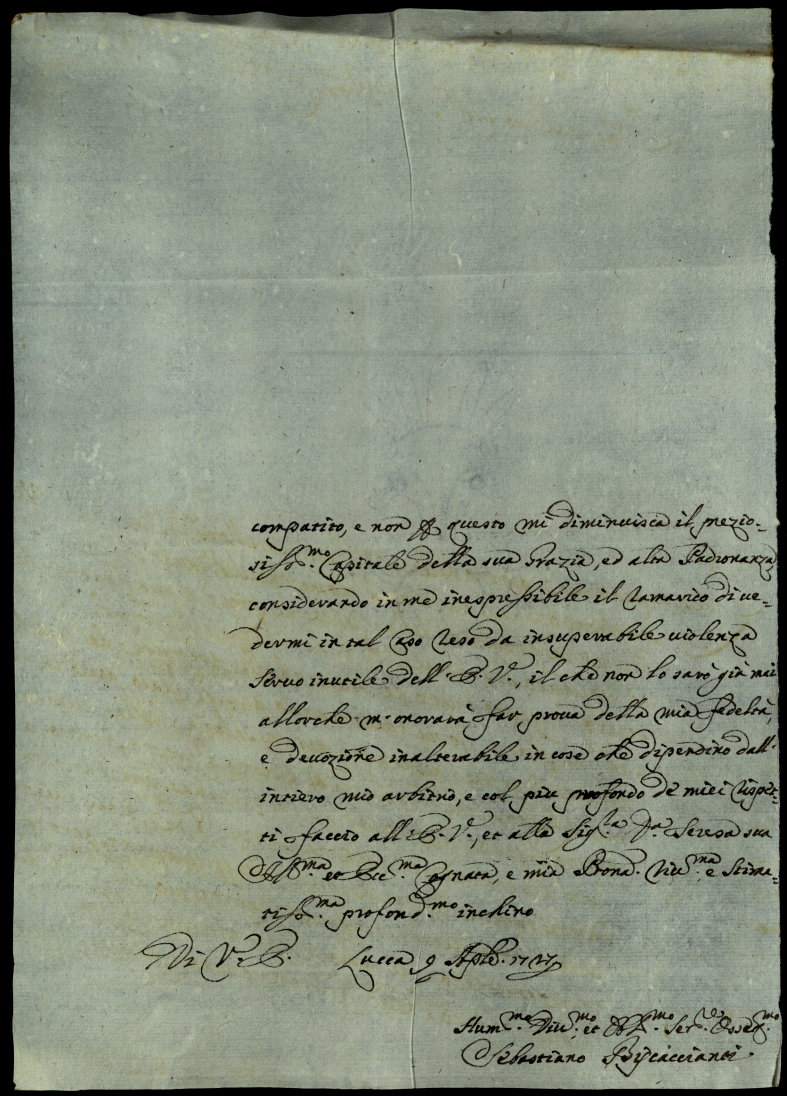 compatito, e non p questo mi diminuisca il prezio-
siss.mo Capitale della sua Grazia, ed alta Padronanza
considerando in me inespressibile il ramarico di ve=
dermi in tal Caso reso da insuperabile violenza
Servo inutile dell' E. V., il che non lo sarò già mai
allorche m' onorarà far prova della mia fedeltà,
e devozione inalterabile in cose che dipendino dall'
intiero mio arbitrio, e col più profondo de miei rispet=
ti faccio all' E. V., et alla Sig.ra D.a Teresa sua
Ill.ma et Ecc.ma Cognata, e mia Prona. riv.ma e stima=
tiss.ma profond.mo inchino
Di V. E. Lucca 9 Aple. 1727
Hum.mo Div.mo et Obl.mo Ser.re Osseq.mo
Sebastiano